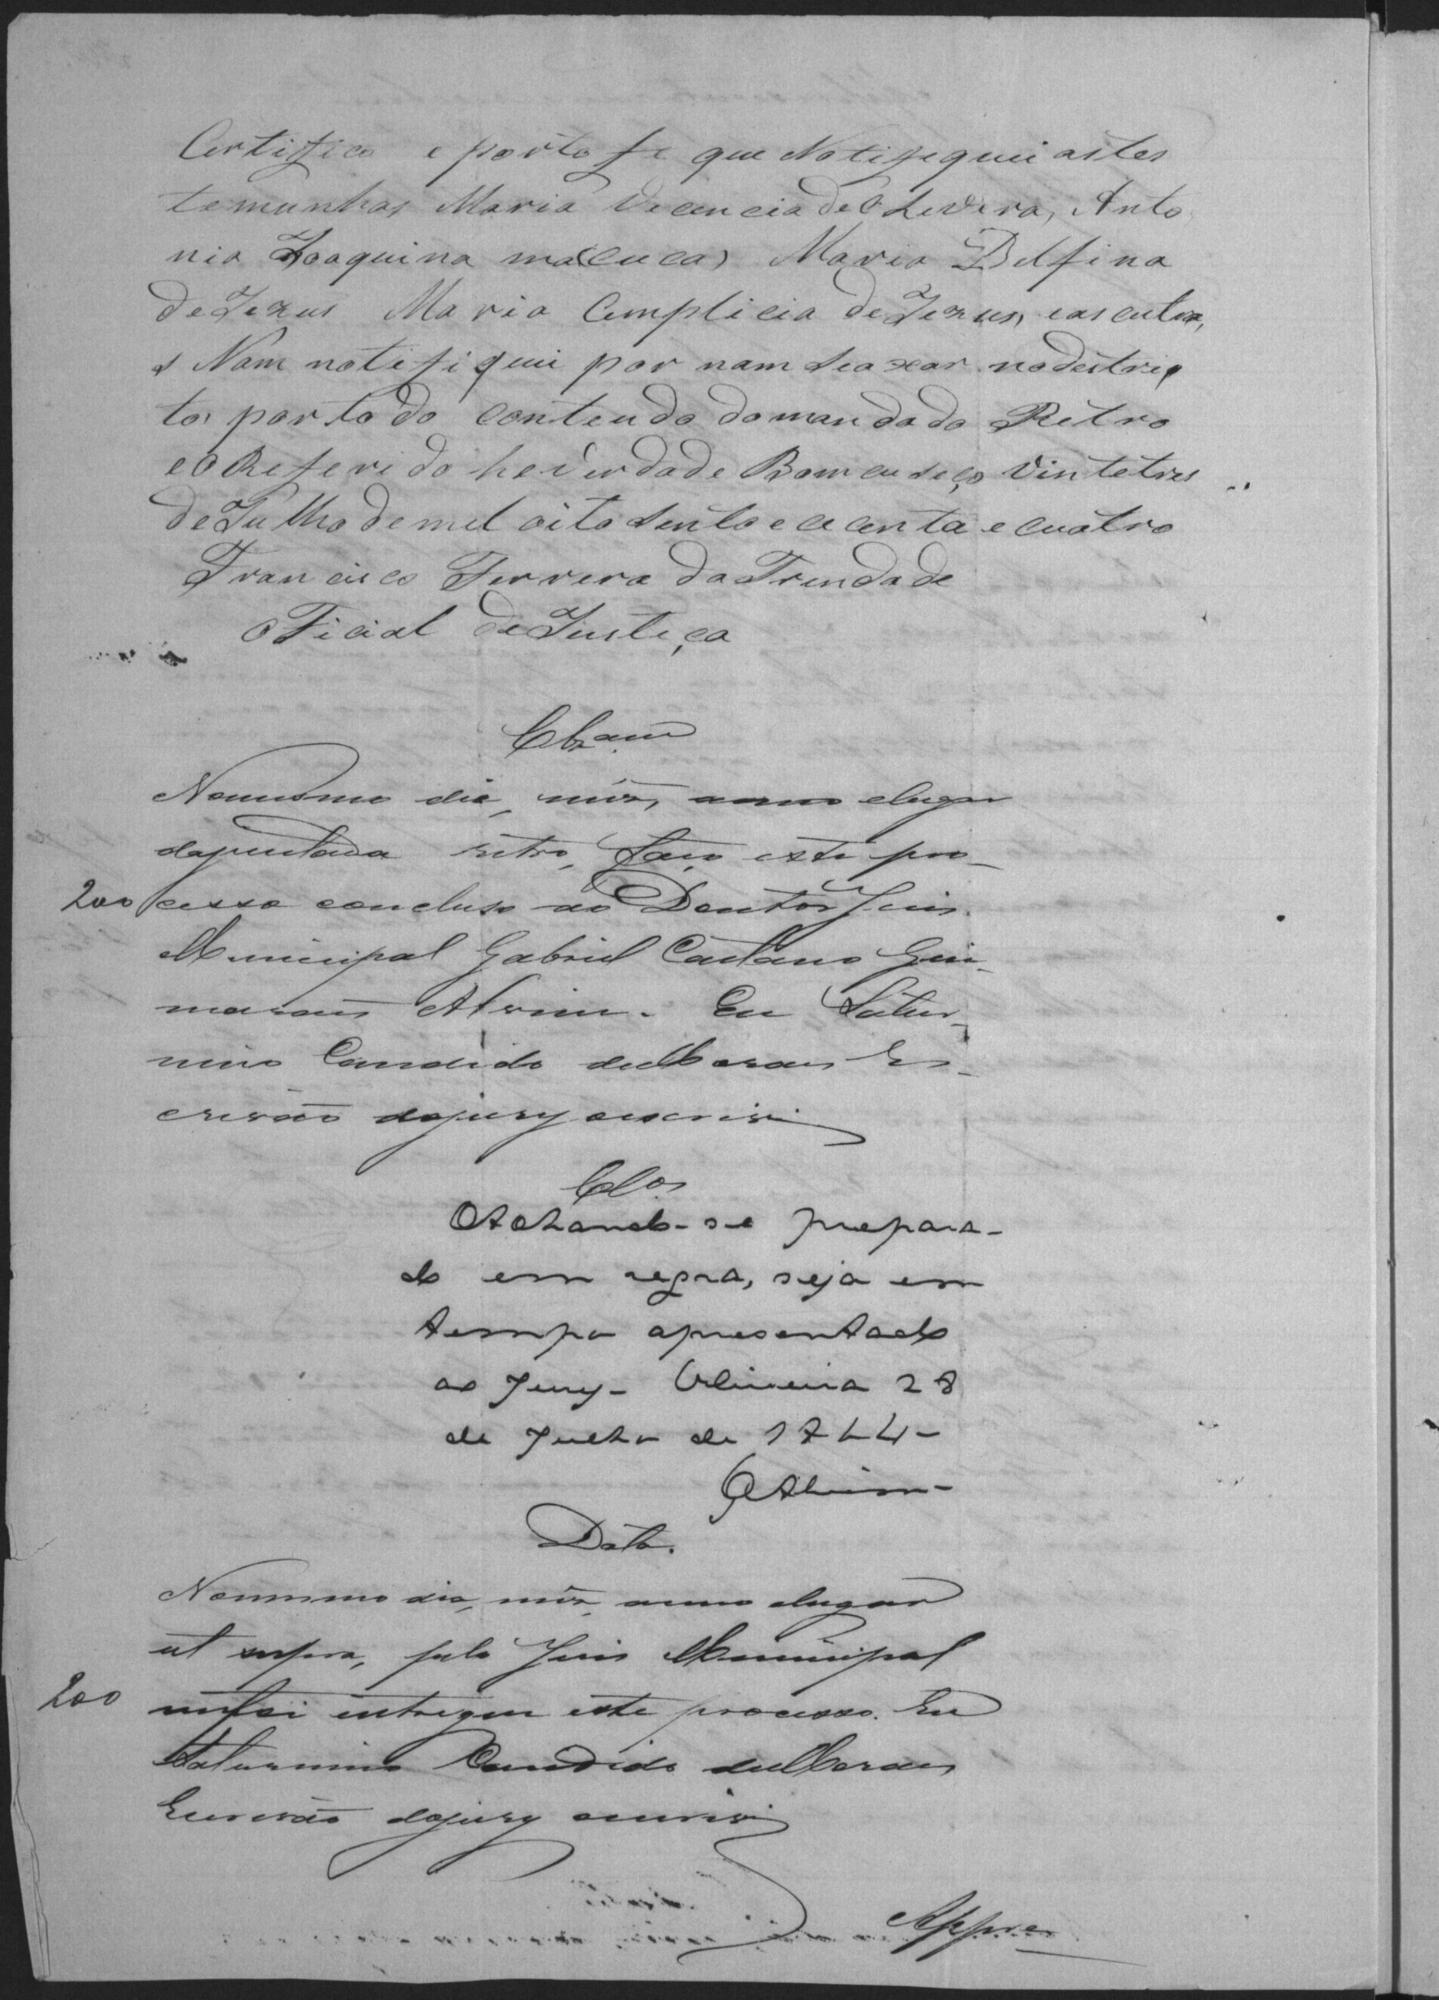 Certifico e porto fe que Notifiquei astes
temunhas Maria Vecencia de Olevera, Anto
nia Joaquina macuca, Maria Delfina
de Jezus Maria Cemplicia de Jezus, eas outra,
s Nam notifiquei por nam se axar nodestrip
to, por todo contendo do mandado Retro
eo Referido he verdade Bom cuseço Vintetres
de Julho de mel oito sento e oicenta e cuatro
Francisco Ferrera da Trindade
oFicial de Justiça
Clzam
Nomesmo dia, mez, anno elugar
dajuntada retro, faço este pro-
200 cesso concluso ao Doutor Juis
Municipal Gabriel Caetano Gui-
maraes Alvim. Eu Satur-
nino Candido deMoraes Es-
crivão dojury oescrivi
Clos
Achando-se prepara-
do em regra, seja em
tempo apresentado
ao Jury- Oliveira 28
de Julho de 1884-
GAlvim-
Data.
Nomesmo dia, mez, anno elugar
ut supra, pelo Juis Municipal
200 mefoi entregue este processo. Eu
Saturnino Candido deMoraes
Escrivão dojury oescrivi
Appre